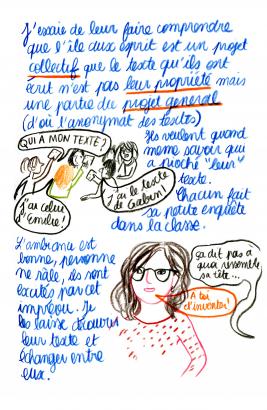 J'essaie de leur faire comprendre
que l'île aux esprit est un projet
collectif que le texte qu'ils ont
écrit n'est pas leur propriété mais
une partie du projet general
(d'où l'anonymat des textes)
Ils veulent quand
même savoir qui
a pioché "leur"
texte.
Chacun fait
sa petite enquête
dans la classe.
QUI A MON TEXTE?
j'ai celui
d'Emilie!
j'ai le texte
de Gabin!
L'ambiance est
bonne, personne
ne râle, ils sont
excités par cet
imprévu. Je
les laisse découvrir
leur texte et
échanger entre
eux.
ça dit pas à
quoi ressemble
sa tête...
A toi
d'inventer!